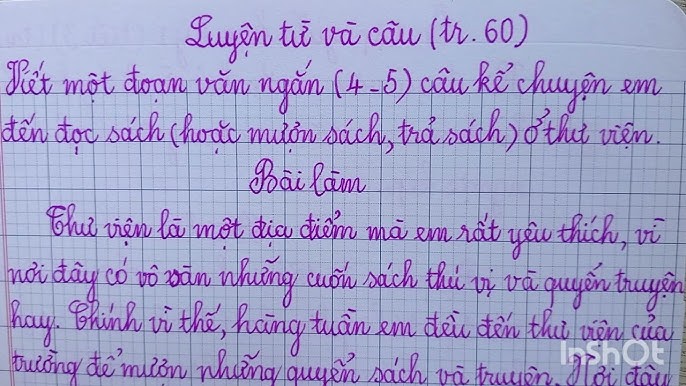 Luyện từ và câu (tr. 60)
Viết một đoạn văn ngắn (4-5) câu kể chuyện em
đến đọc sách (hoặc mượn sách, trả sách) ở thư viện.
Bài làm
Thư viện là một địa điểm mà em rất yêu thích, vì
nơi đây có vô vàn những cuốn sách thú vị và quyển truyện
hay. Chính vì thế, hàng tuần em đều đến thư viện của
trường để mượn những quyển sách và truyện. Nơi đây
InShOt